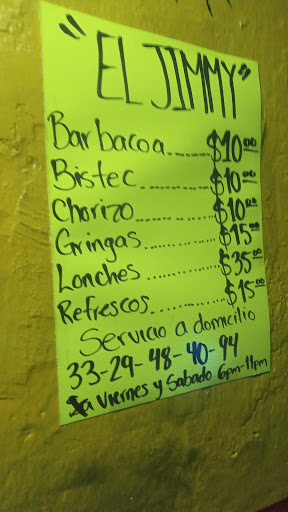 "EL JIMMY"
Barbacoa........$10.00
Bistec..........$10.00
Chorizo.........$10.00
Gringas.........$15.00
Lonches.........$35.00
Refrescos.......$15.00
Servicio a domicilio
33-29-48-40-94
a Viernes y Sabado 6pm-11pm